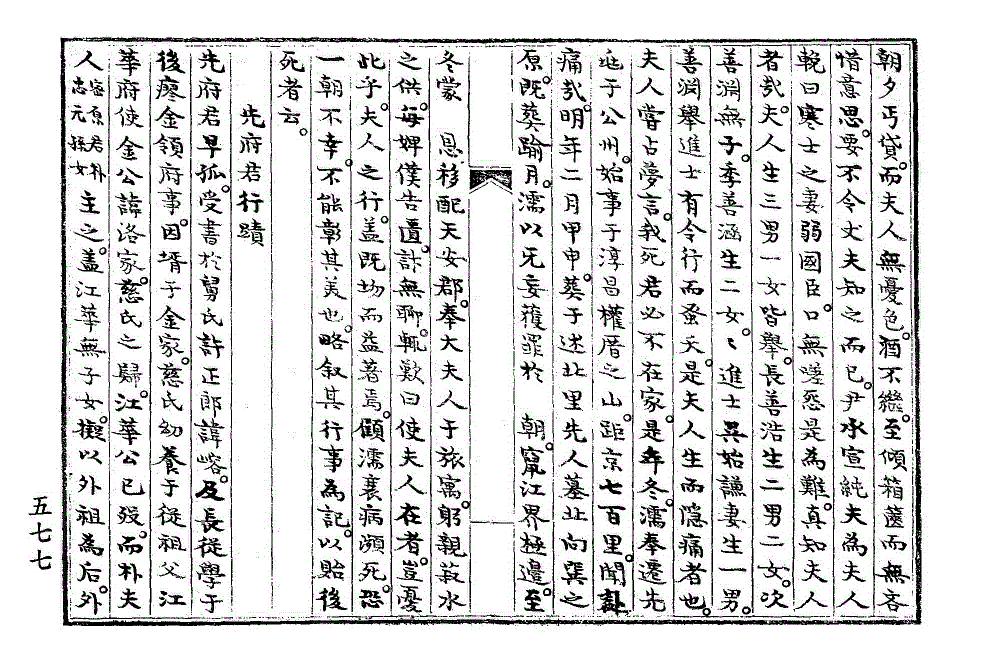 朝夕丐貸。而夫人無憂色。酒不繼。至傾箱篋而無吝
惜意思。要不令丈夫知之而已。尹承宣純夫為夫人
輓曰寒士之妻弱國臣。口無嗟怨是為難。真知夫人
者哉。夫人生三男一女皆擧。長善浩生二男二女。次
善淵無子。季善涵生二女。〻進士吳始謙妻生一男。
善淵擧進士有令行而蚤夭。是夫人生而隱痛者也。
夫人嘗占夢言。我死君必不在家。是年冬。濡奉遷先
兆于公州。始事于淳昌權厝之山。距京七百里。聞訃
痛哉。明年二月甲申。葬于述北里先人墓北向巽之
原。旣葬踰月。濡以无妄獲罪於 朝。竄江界極邊。至
冬蒙 恩移配天安郡。奉大夫人于旅寓。躬親菽水
之供。每婢僕告匱。計無聊。輒歎曰使夫人在者。豈憂
此乎。夫人之行。盖旣均而益著焉。顧濡衰病瀕死。恐
一朝不幸。不能彰其美也。略叙其行事為記。以貽後
死者云。
先府君行蹟
先府君早孤。受書於舅氏許正郎諱㟧。及長從學于
後瘳金領府事。因壻于金家。慈氏幼養于從祖父江
華府使金公諱洛家。慈氏之歸。江華公已歿。而朴夫
人密原君朴忠元孫女主之。盖江華無子女。擬以外祖為后。外
五七七